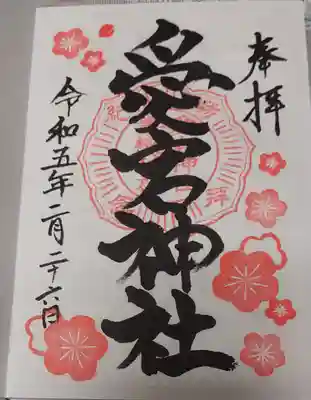 奉拝
愛宕神社
令和五年二月二十六日